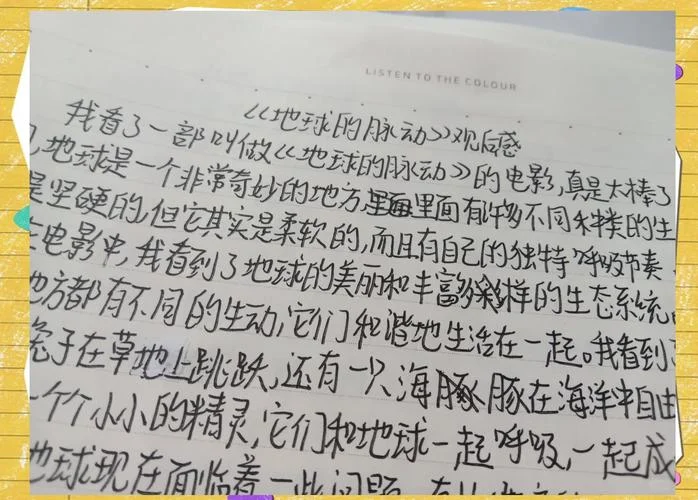 LISTEN TO THE COLOUR
《地球的脉动》观后感
我看了一部叫做《地球的脉动》的电影,真是太棒了
地球是一个非常奇妙的地方,里面有许多不同种类的生
是坚硬的,但它其实是柔软的,而且有自己的独特呼吸节奏
电影中,我看到了地球的美丽和丰富多彩样的生态系统
地方都有不同的生动,它们和谐地生活在一起。我看到
兔子在草地上跳跃,还有一只海豚在海洋中自由
一个个小小的精灵,它们和地球一起呼吸,一起成
地球现在面临着一些问题